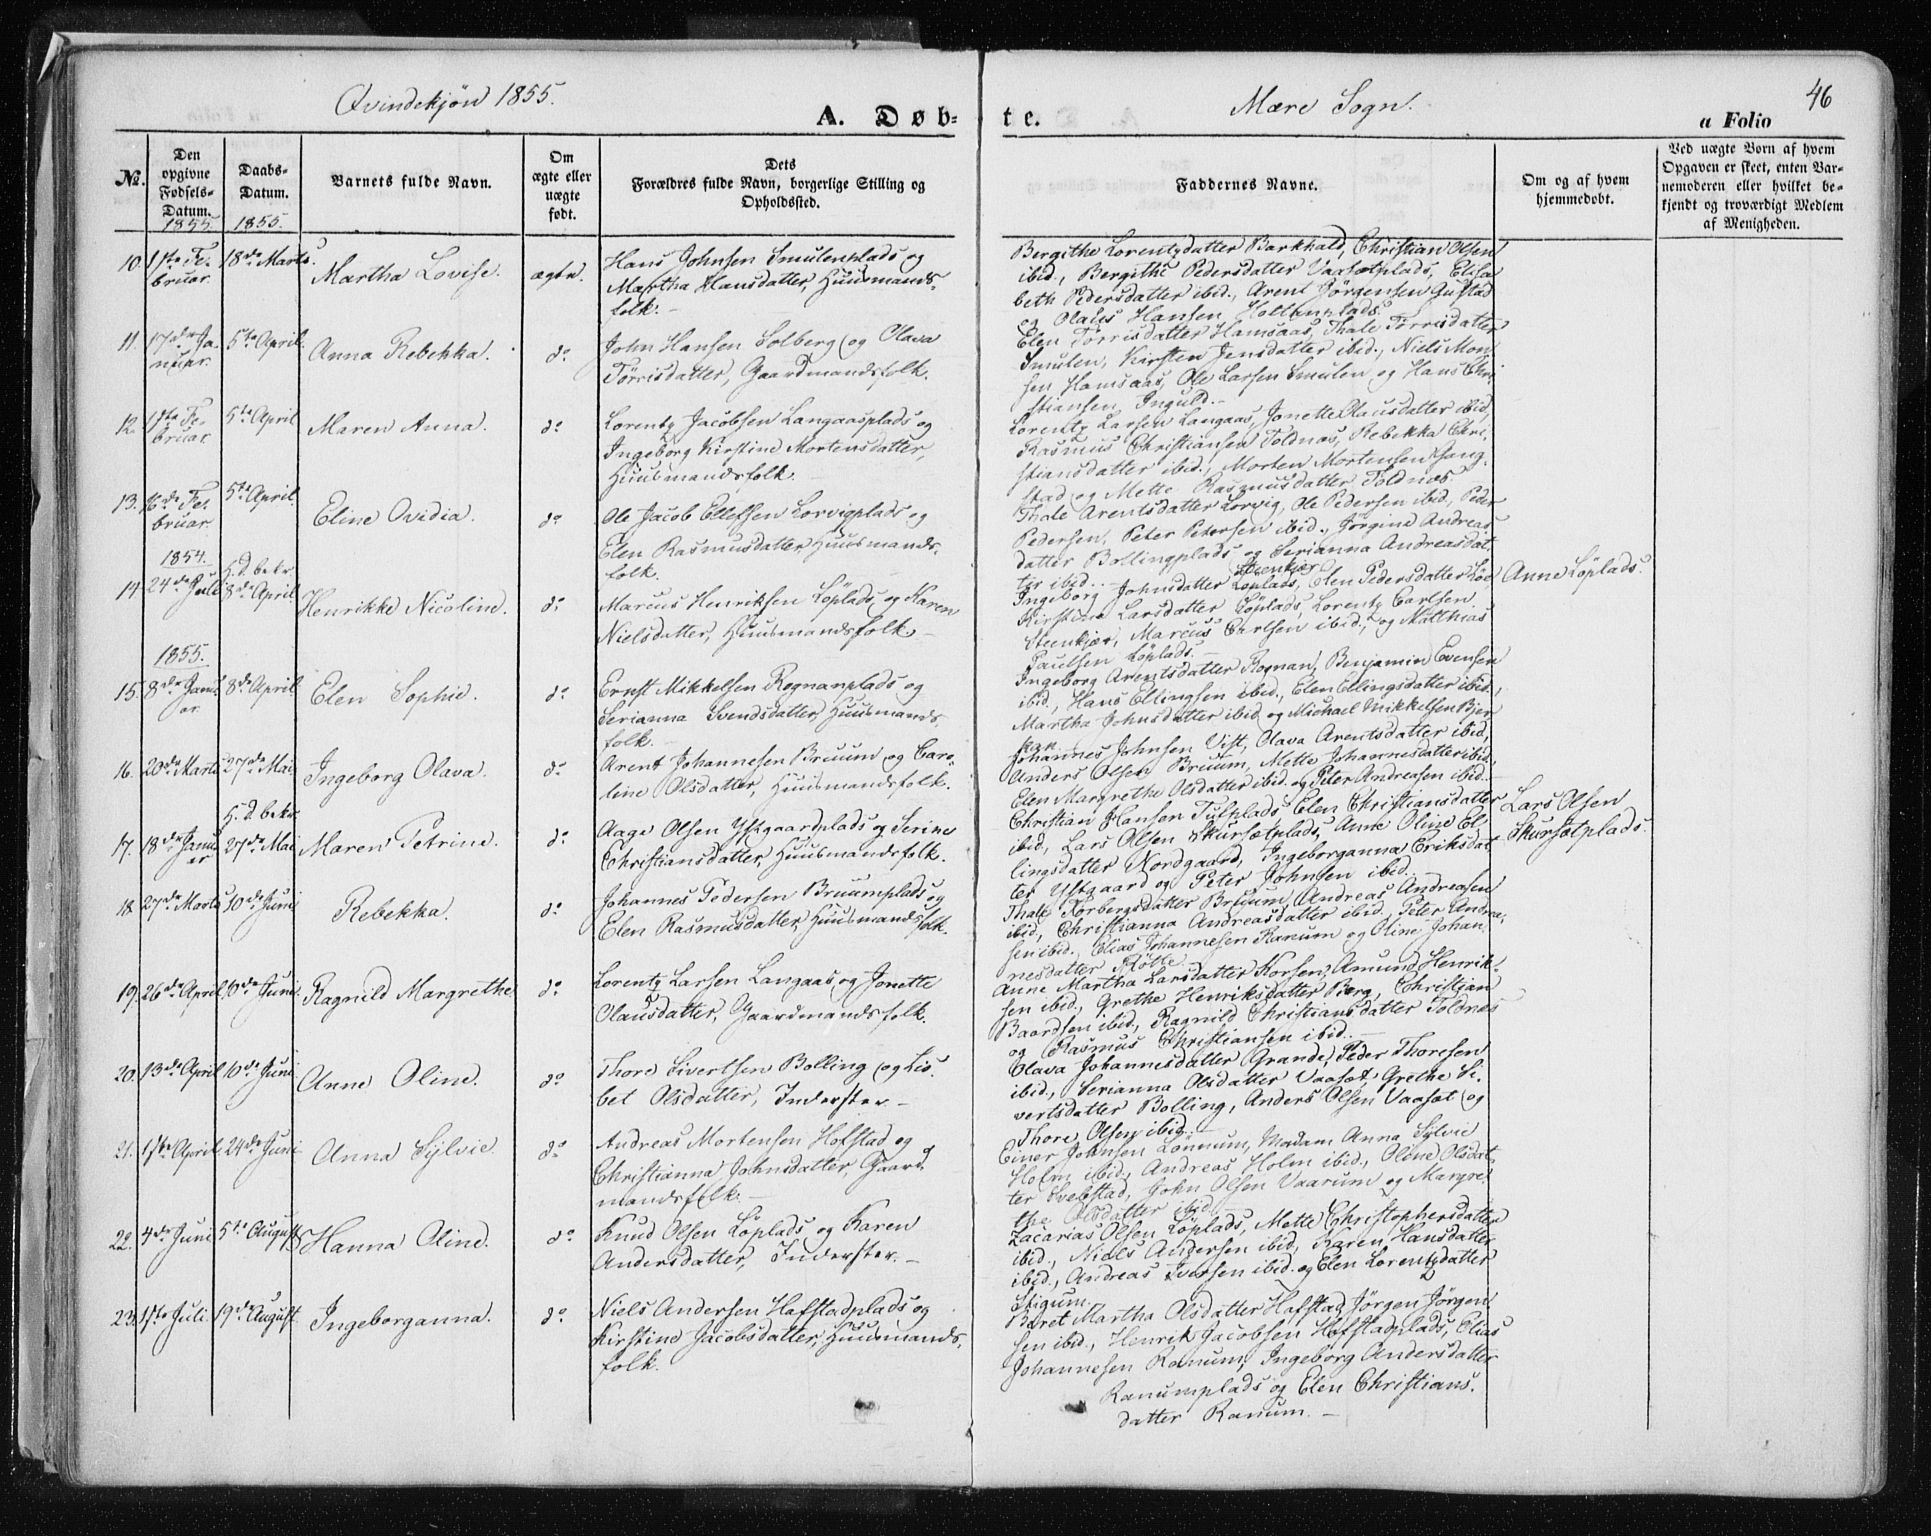 Qvindekjön 1855.
A. Døb-
te.
Mære Sogn.
46
a Folio
No.
Den opgivne Fødsels-Datum.
1855.
Daabs-Datum.
1855.
Barnets fulde Navn.
Om ægte eller uægte født.
Dets
Forældres fulde Navn, borgerlige Stilling og
Opholdssted.
Faddernes Navne.
Om og af hvem
hjemmedøbt.
Ved uægte Børn af hvem
Opgaven er skeet, enten Bar-
nemoderen eller hvilket be-
kjendt og troværdigt Medlem
af Menigheden.
10. 11te Fe-
bruar. 18de Marts. Martha Lovise. ægte.
Hans Johnsen Smulenplads og
Martha Hansdatter, Huusmands-
folk.
Bergithe Lorentzdatter Barkhald, Christian Olsen
ibid., Bergithe Pedersdatter Vaasætplads, Elisa-
beth Pedersdatter ibid., Arent Jörgensen Gustad
og Olaus Hansen Holtenplads.
11. 17de Ja-
nuar. 5te April. Anna Rebekka. do
John Hansen Solberg og Olava
Törrisdatter, Gaardmandsfolk.
Elen Törrisdatter Hamsaas, Thale Törrisdatter
Smulen, Kirsten Jensdatter ibid., Niels Mon-
sen Hamsaas, Ole Larsen Smulen og Hans Chri-
stiansen Inguld.
12. 1ste Fe-
bruar. 5te April Maren Anna. do
Lorentz Jacobsen Langaasplads og
Ingeborg Kirstine Mortensdatter,
Huusmandsfolk.
Lorentz Larsen Langaas, Jonette Olausdatter ibid,
Rasmus Christiansen Toldnæs, Rebekka Chri-
stiansdatter ibid., Morten Mortensen Gang-
stad og Mette Rasmusdatter Toldnæs.
13. 16de Fe-
bruar. 5te April. Eline Ovidia. do
Ole Jacob Ellefsen Lorvigplads og
Elen Rasmusdatter, Huusmands-
folk.
Thale Arentsdatter Lorvig, Ole Pedersen ibid., Peder
Pedersen, Peter Petersen ibid., Jörgine Andreas-
datter Bollingplads og Serianna Andreasdat-
ter ibid.
1854.
H. d. bekr.
14. 24de Juli 8de April. Henrikke Nicoline. do
Marcus Henriksen Löplads og Karen
Nielsdatter, Huusmandsfolk.
Steenkjer
Ingeborg Johnsdatter Löplads, Elen Pedersdatter Löe,
Kirstine Larsdatter Löplads, Lorentz Carlsen
Steenkjær, Marcus Carlsen ibid., og Matthias
Paulsen Löplads.
Anne Löplads.
1855.
15. 8de Janu-
ar. 8de April. Elen Sophie. do
Ernst Mikkelsen Rognanplads og
Serianna Svendsdatter, Huusmands-
folk.
Ingeborg Arentsdatter Rognan, Benjamin Evensen
ibid., Hans Ellingsen ibid., Elen Ellingsdatter ibid.,
Martha Johnsdatter ibid. og Michael Mikkelsen Bjer-
kan.
16. 20de Marts 27de Mai Ingeborg Olava. do
Arent Johannesen Bruum og Caro-
line Olsdatter, Huusmandsfolk.
Johannes Johnsen Vist, Olava Arentsdatter ibid,
Anders Olsen Bruum, Mette Johannesdatter ibid.,
Elen Margrethe Olsdatter ibid. og Peter Andreasen ibid.
H. d. bekr.
17. 18de Janu-
ar 27de Mai Maren Petrine. do
Aage Olsen Ystgaardplads og Serine
Christiansdatter, Huusmandsfolk.
Christian Hansen Tulplads, Elen Christiansdatter
ibid, Lars Olsen Skursætplads, Anne Oline El-
lingsdatter Nordgaard, Ingeborganna Eriksdat-
ter Ystgaard og Peter Johnsen ibid.
Lars Olsen
Skursætplads.
18. 27de Marts 10de Juni Rebekka. do
Johannes Pedersen Bruumplads og
Elen Rasmusdatter, Huusmandsfolk.
Thale Torbergsdatter Bruum, Andreas Andreasen
ibid, Christianna Andreasdatter ibid. Peter Andrea-
sen ibid., Elias Johannesen Ranum og Oline Johan-
nesdatter Flötte.
19. 26de April 10de Juni. Ragnild Margrethe do
Lorentz Larsen Langaas og Jonette
Olausdatter, Gaardmandsfolk.
Anne Martha Larsdatter Korsen, Amund Henrik-
sen ibid., Grethe Henriksdatter Berg, Christian
Baardsen ibid, Ragnild Christiansdatter Toldnæs
og Rasmus Christiansen ibid.
20. 13de April 10de Juni. Anne Oline. do
Thore Sivertsen Bolling og Lis-
bet Olsdatter, Inderster.
Olava Johannesdatter Grande, Peder Thoresen
ibid., Serianna Olsdatter Vaasæt, Grethe Si-
vertsdatter Bolling, Anders Olsen Vaasæt og
Thore Olsen ibid.
21. 1ste April 24de Juni Anna Sylvie. do
Andreas Mortensen Hofstad og
Christianna Johnsdatter, Gaard-
mandsfolk.
Einer Johnsen Lönnum, Madam Anna Sylvie
Holm ibid., Andreas Holm ibid., Oline Olsdat-
ter Svebstad, John Olsen Vaarum og Margre-
the Olsdatter ibid.
22. 4de Juni 5te August Hanna Oline. do
Knud Olsen Löplads og Karen
Andersdatter, Inderster.
Zacarias Olsen Löplads, Mette Christophersdatter
ibid., Niels Andersen ibid, Karen Hansdatter
ibid., Andreas Iversen ibid. og Elen Lorentzdatter
Stigum.
23. 1ste Juli. 19de August Ingeborganna. do
Niels Andersen Hafstadplads og
Kirstine Jacobsdatter, Huusmands-
folk.
Beret Martha Olsdatter Hafstad, Jörgen Jörgen-
sen ibid., Henrik Jacobsen Hofstadplads, Elias
Johannesen Ranum, Ingeborg Andersdatter
Ranumplads og Elen Christians-
datter Ranum.